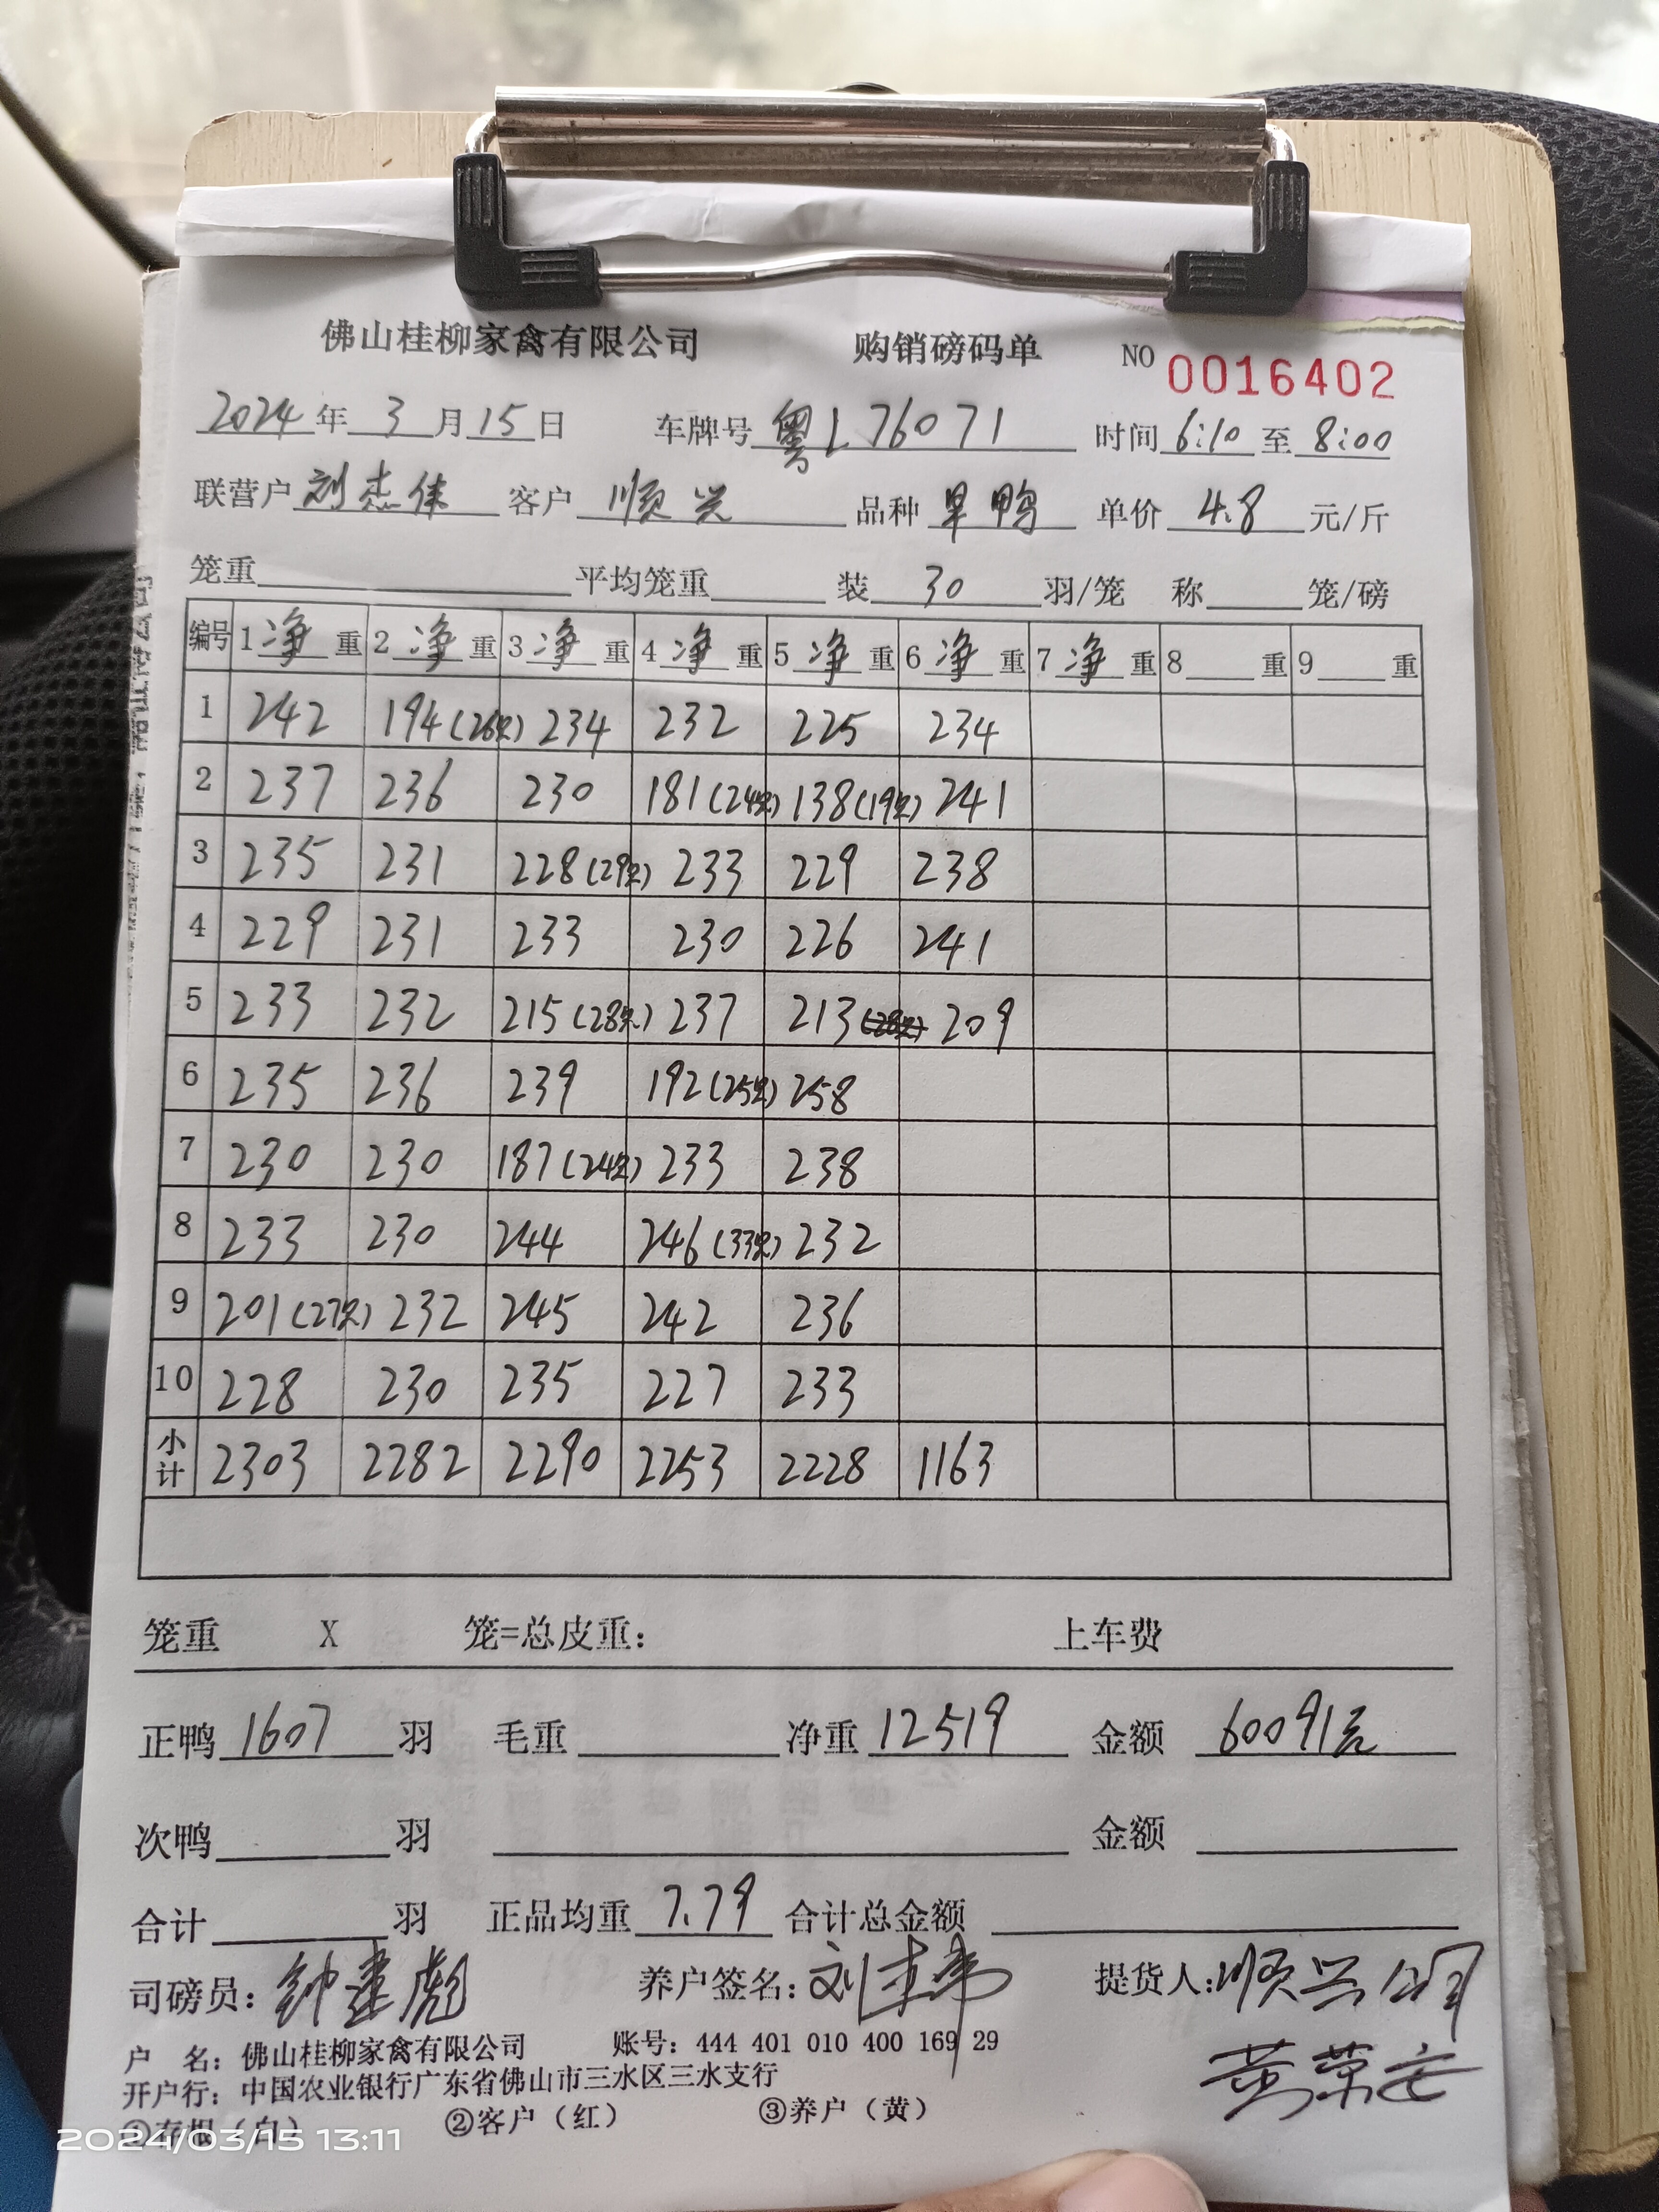 佛山桂柳家禽有限公司 购销磅码单 NO 0016402
2024年3月15日 车牌号 粤L76071 时间 6:10 至 8:00
联营户 刘杰伟 客户 顺兴 品种 旱鸭 单价 4.8 元/斤
笼重 平均笼重 装 30 羽/笼 称 笼/磅
编号 1 净 重 2 净 重 3 净 重 4 净 重 5 净 重 6 净 重 7 净 重 8 重 9 重
1 242 194(26只) 234 232 225 234
2 237 236 230 181(24只) 138(19只) 241
3 235 231 228(29只) 233 229 238
4 229 231 233 230 226 241
5 233 232 215(28只) 237 213(28只) 209
6 235 236 239 192(25只) 258
7 230 230 187(24只) 233 238
8 233 230 244 246(33只) 232
9 201(27只) 232 245 242 236
10 228 230 235 227 233
小计 2303 2282 2290 2253 2228 1163
笼重 X 笼=总皮重： 上车费
正鸭 1607 羽 毛重 净重 12519 金额 60091元
次鸭 羽 金额
合计 羽 正品均重 7.79 合计总金额
司磅员：钟建彪 养户签名：刘杰伟 提货人：顺兴公司
黄荣安
户 名：佛山桂柳家禽有限公司 账号：444 401 010 400 169 29
开户行：中国农业银行广东省佛山市三水区三水支行
①存根（白） ②客户（红） ③养户（黄）
2024/03/15 13:11